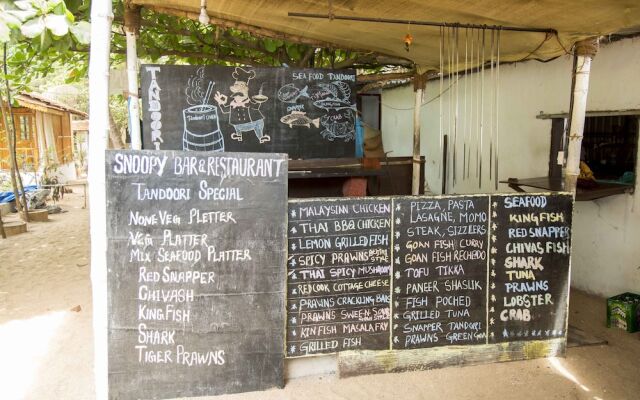 TANDOORI
SEA FOOD TANDOORI
CRAB
SNOOPY BAR & RESTAURANT
TANDOORI SPECIAL
NONE VEG PLETTER
VEG PLATTER
MIX SEAFOOD PLATTER
RED SNAPPER
CHIVASH
KING FISH
SHARK
TIGER PRAWNS
MALAYSINN CHICKEN
THAI BBQ CHICKEN
LEMON GRILLED FISH
SPICY PRAWNS
THAI SPICY MUSHROOM
RED COOK COTTAGE CHEESE
PRAWNS CRACKLING BAKS
PRAWNS SWEEN SOUR
KIN FISH MASALA FRY
GRILLED FISH
PIZZA, PASTA
LASAGNE, MOMO
STEAK, SIZZLERS
GOAN FISH CURRY
GOAN FISH RECHEDO
TOFU TIKKA
PANEER SHASLIK
FISH POCHED
GRILLED TUNA
SNAPPER TANDORI
PRAWNS GREEN GOA
SEAFOOD
KING FISH
RED SNAPPER
CHIVAS FISH
SHARK
TUNA
PRAWNS
LOBSTER
CRAB